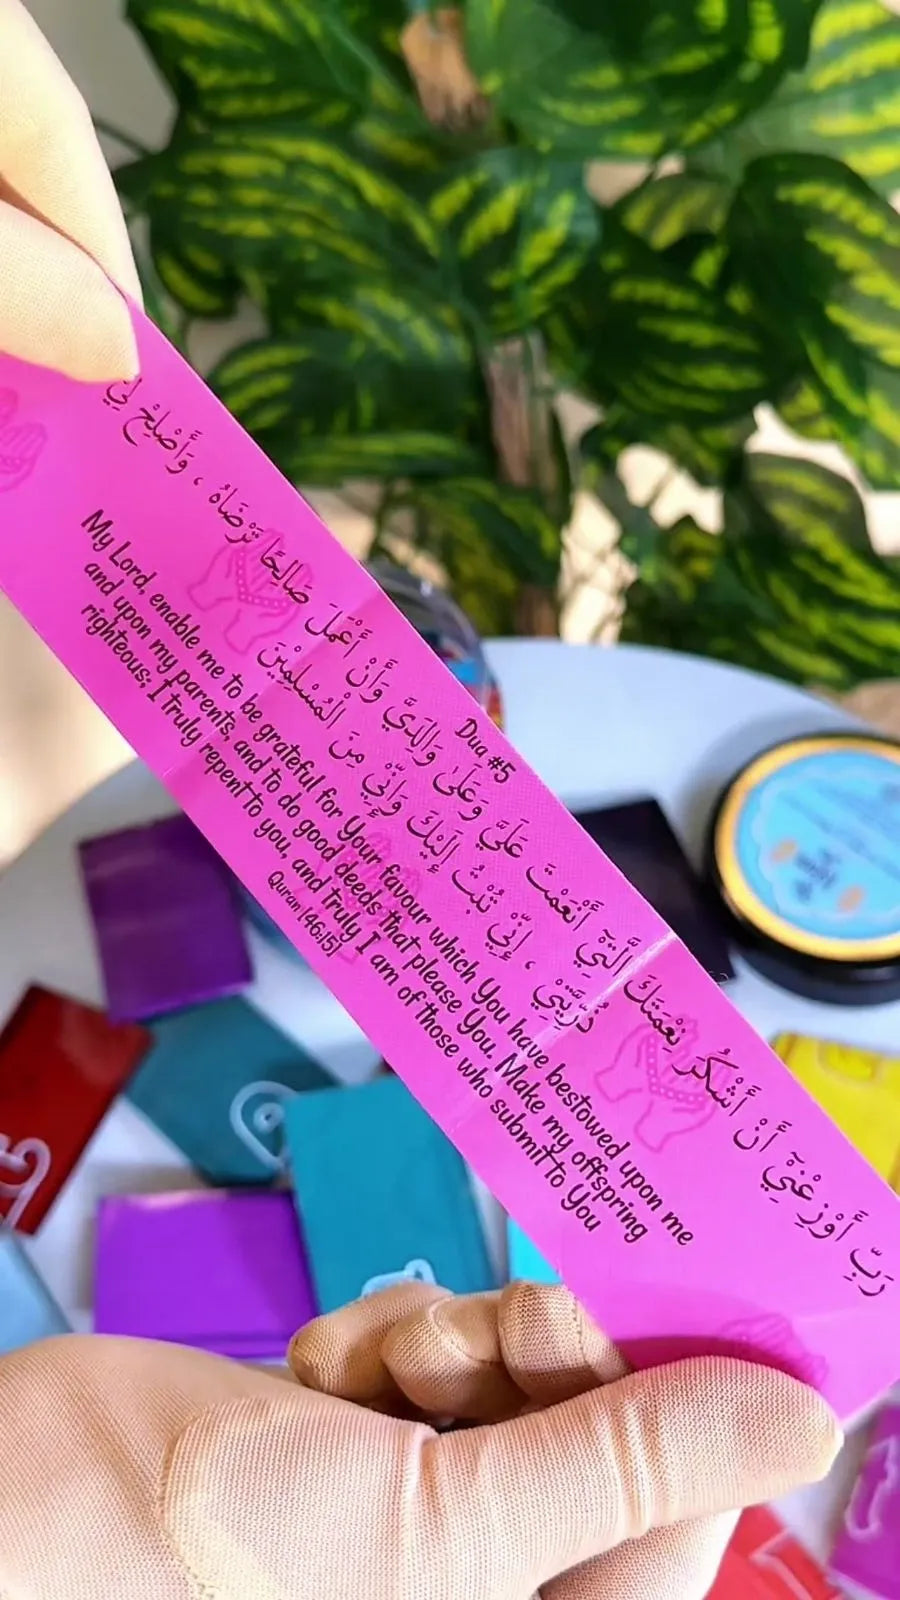 Dua #5
رَبِّ أَوْزِعْنِيْٓ أَنْ أَشْكُرَ نِعْمَتَكَ الَّتِيْٓ أَنْعَمْتَ عَلَيَّ وَعَلىٰ وَالِدَيَّ وَأَنْ أَعْمَلَ صَالِحًا تَرْضَاهُ ، وَأَصْلِحْ لِيْ
ذُرِّيَّتِيْ ، إِنِّيْ تُبْتُ إِلَيْكَ وَإِنِّيْ مِنَ الْمُسْلِمِيْنَ
My Lord, enable me to be grateful for Your favour which You have bestowed upon me
and upon my parents, and to do good deeds that please You. Make my offspring
righteous; I truly repent to you, and truly I am of those who submit to You
Quran [46:15]